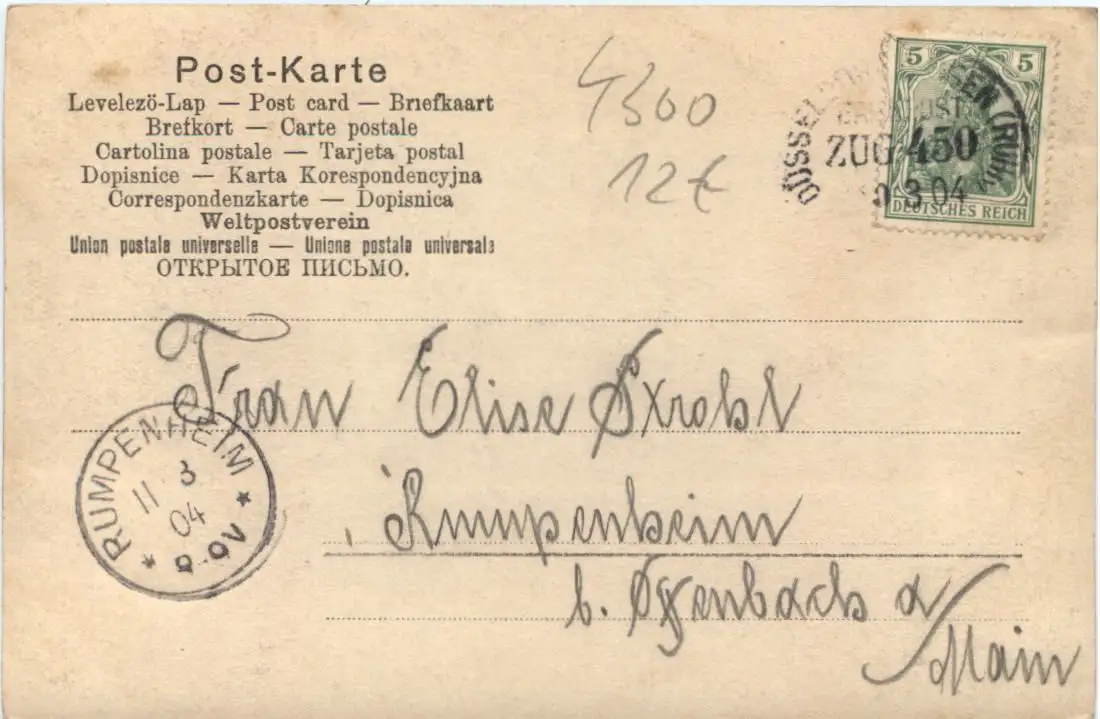 Post-Karte
Levelező-Lap — Post card — Briefkaart
Brefkort — Carte postale
Cartolina postale — Tarjeta postal
Dopisnice — Karta Korespondencyjna
Correspondenzkarte — Dopisnica
Weltpostverein
Union postale universelle — Unione postale universale
ОТКРЫТОЕ ПИСЬМО.
4300
12€
5 5
DEUTSCHES REICH
ZUG 450
3 04
(RUHR)
Frau Elise Strobl
Rumpenheim
b. Offenbach a/
Main
RUMPENHEIM
11 3
04
8-9V